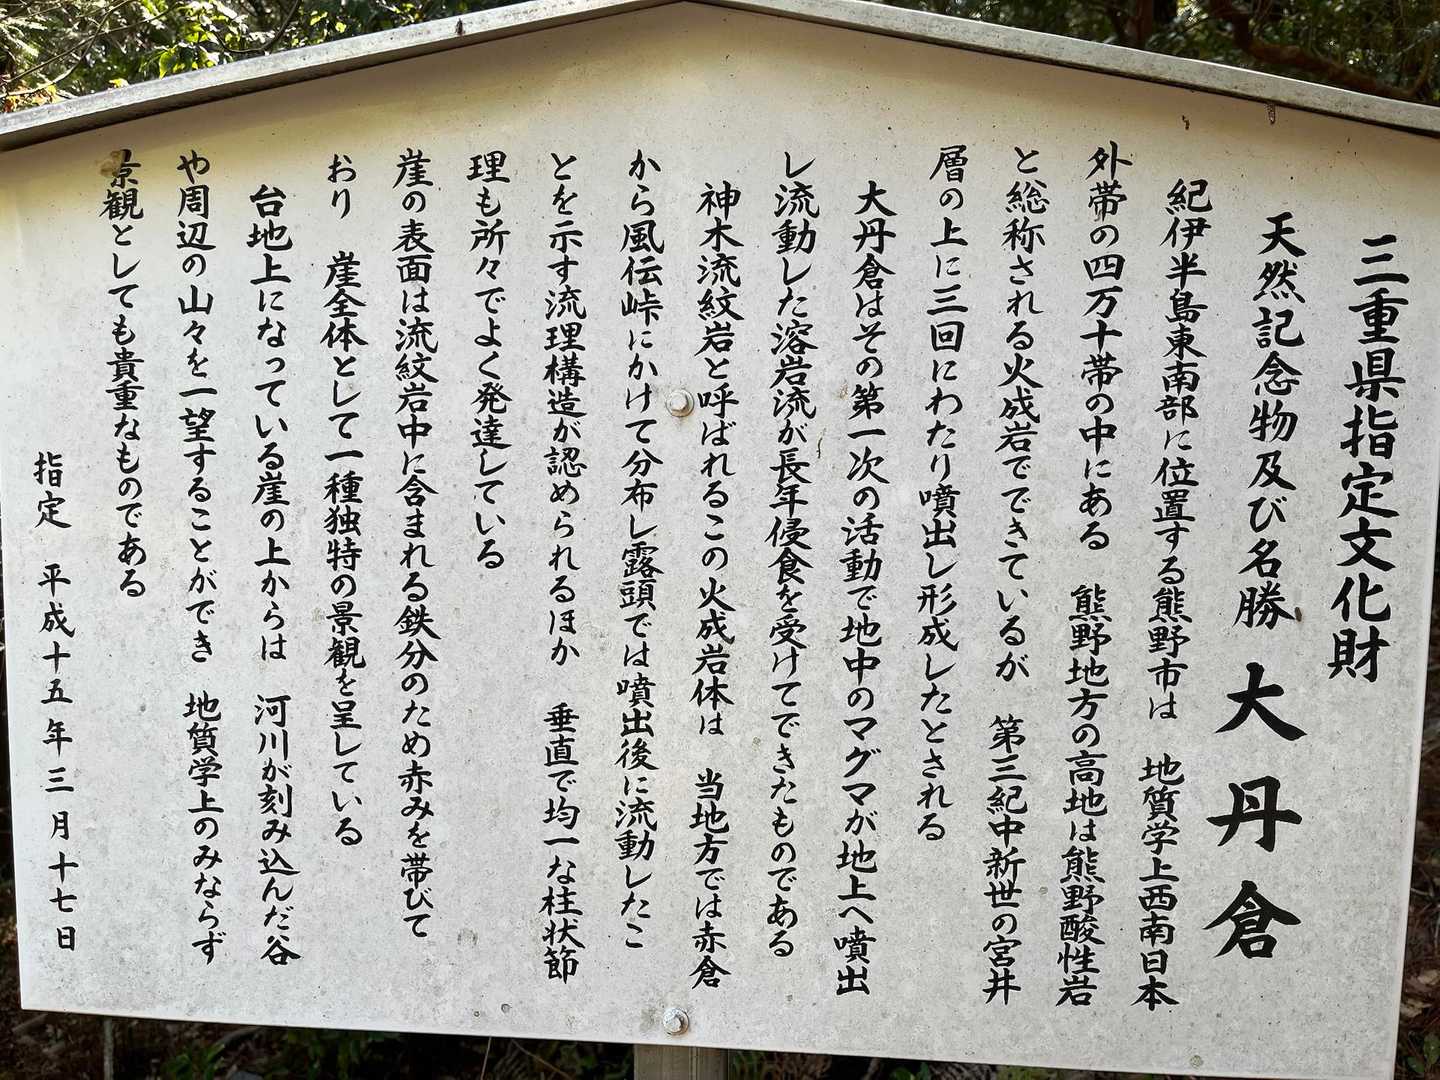 三重県指定文化財
天然記念物及び名勝 大丹倉
紀伊半島東南部に位置する熊野市は 地質学上西南日本
外帯の四万十帯の中にある 熊野地方の高地は熊野酸性岩
と総称される火成岩でできているが 第三紀中新世の宮井
層の上に三回にわたり噴出し形成したとされる
大丹倉はその第一次の活動で地中のマグマが地上へ噴出
し流動した溶岩流が長年侵食を受けてできたものである
神木流紋岩と呼ばれるこの火成岩体は 当地方では赤倉
から風伝峠にかけて分布し露頭では噴出後に流動したこ
とを示す流理構造が認められるほか 垂直で均一な柱状節
理も所々でよく発達している
崖の表面は流紋岩中に含まれる鉄分のため赤みを帯びて
おり 崖全体として一種独特の景観を呈している
台地上になっている崖の上からは 河川が刻み込んだ谷
や周辺の山々を一望することができ 地質学上のみならず
景観としても貴重なものである
指定 平成十五年三月十七日